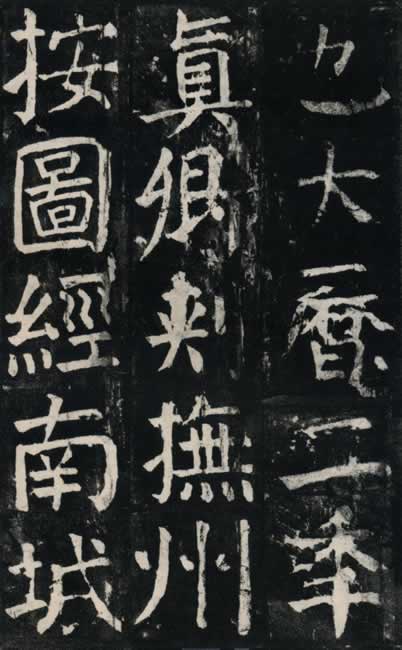 也大曆三年
眞卿刺撫州
按圖經南城